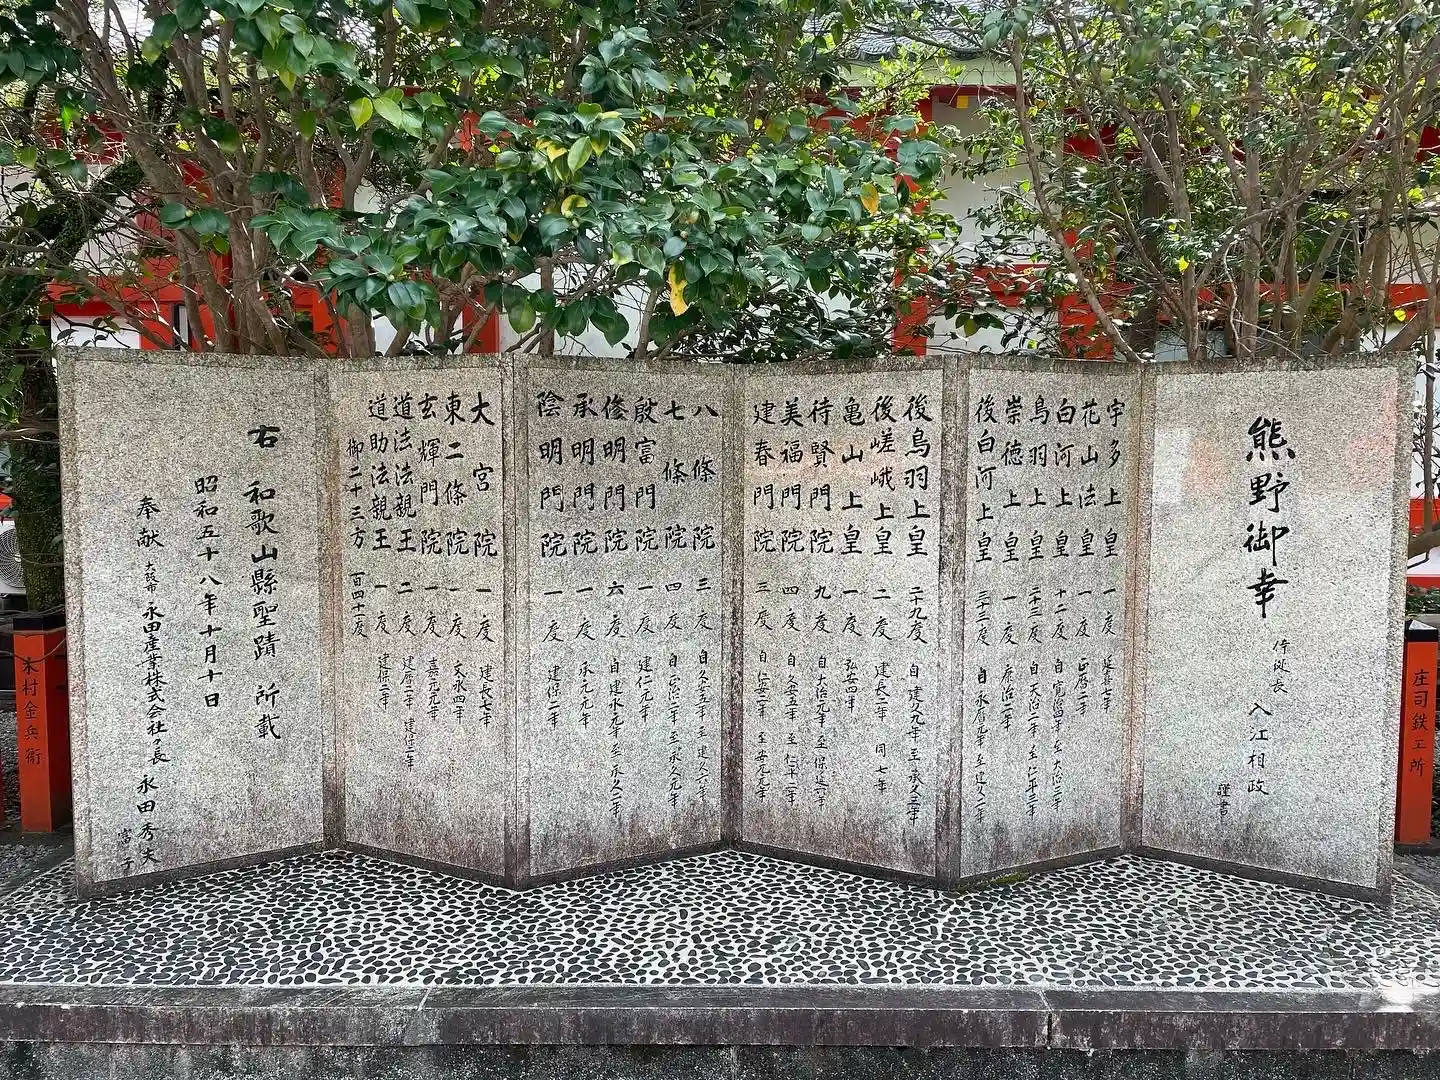 熊野御幸
侍従長 入江相政 謹書
宇多上皇 一度 延喜七年
花山法皇 一度 正暦二年
白河上皇 十二度 自寛治四年至大治三年
鳥羽上皇 二十三度 自天治二年至仁平三年
崇徳上皇 一度 康治二年
後白河上皇 三十三度 自永暦元年至建久二年
後鳥羽上皇 二十九度 自建久九年至承久三年
後嵯峨上皇 二度 建長二年 同七年
亀山上皇 一度 弘安四年
待賢門院 九度 自大治元年至保延六年
美福門院 四度 自久安五年至仁平二年
建春門院 三度 自仁安二年至安元元年
八條院 三度 自久安五年至建久六年
七條院 四度 自正治二年至承久元年
殷富門院 一度 建仁元年
修明門院 六度 自建永元年至承久二年
承明門院 一度 承元元年
陰明門院 一度 建保二年
大宮院 一度 建長七年
東二條院 一度 文永四年
玄輝門院 一度 嘉元元年
道法法親王 二度 建暦二年 建保二年
道助法親王 建保二年
御二十三方 百四十一度
右 和歌山縣聖蹟 所載
昭和五十八年十月十日
奉献 大阪市 永田産業株式会社々長 永田秀夫
富子
庄司鉄工所
米村金兵衛